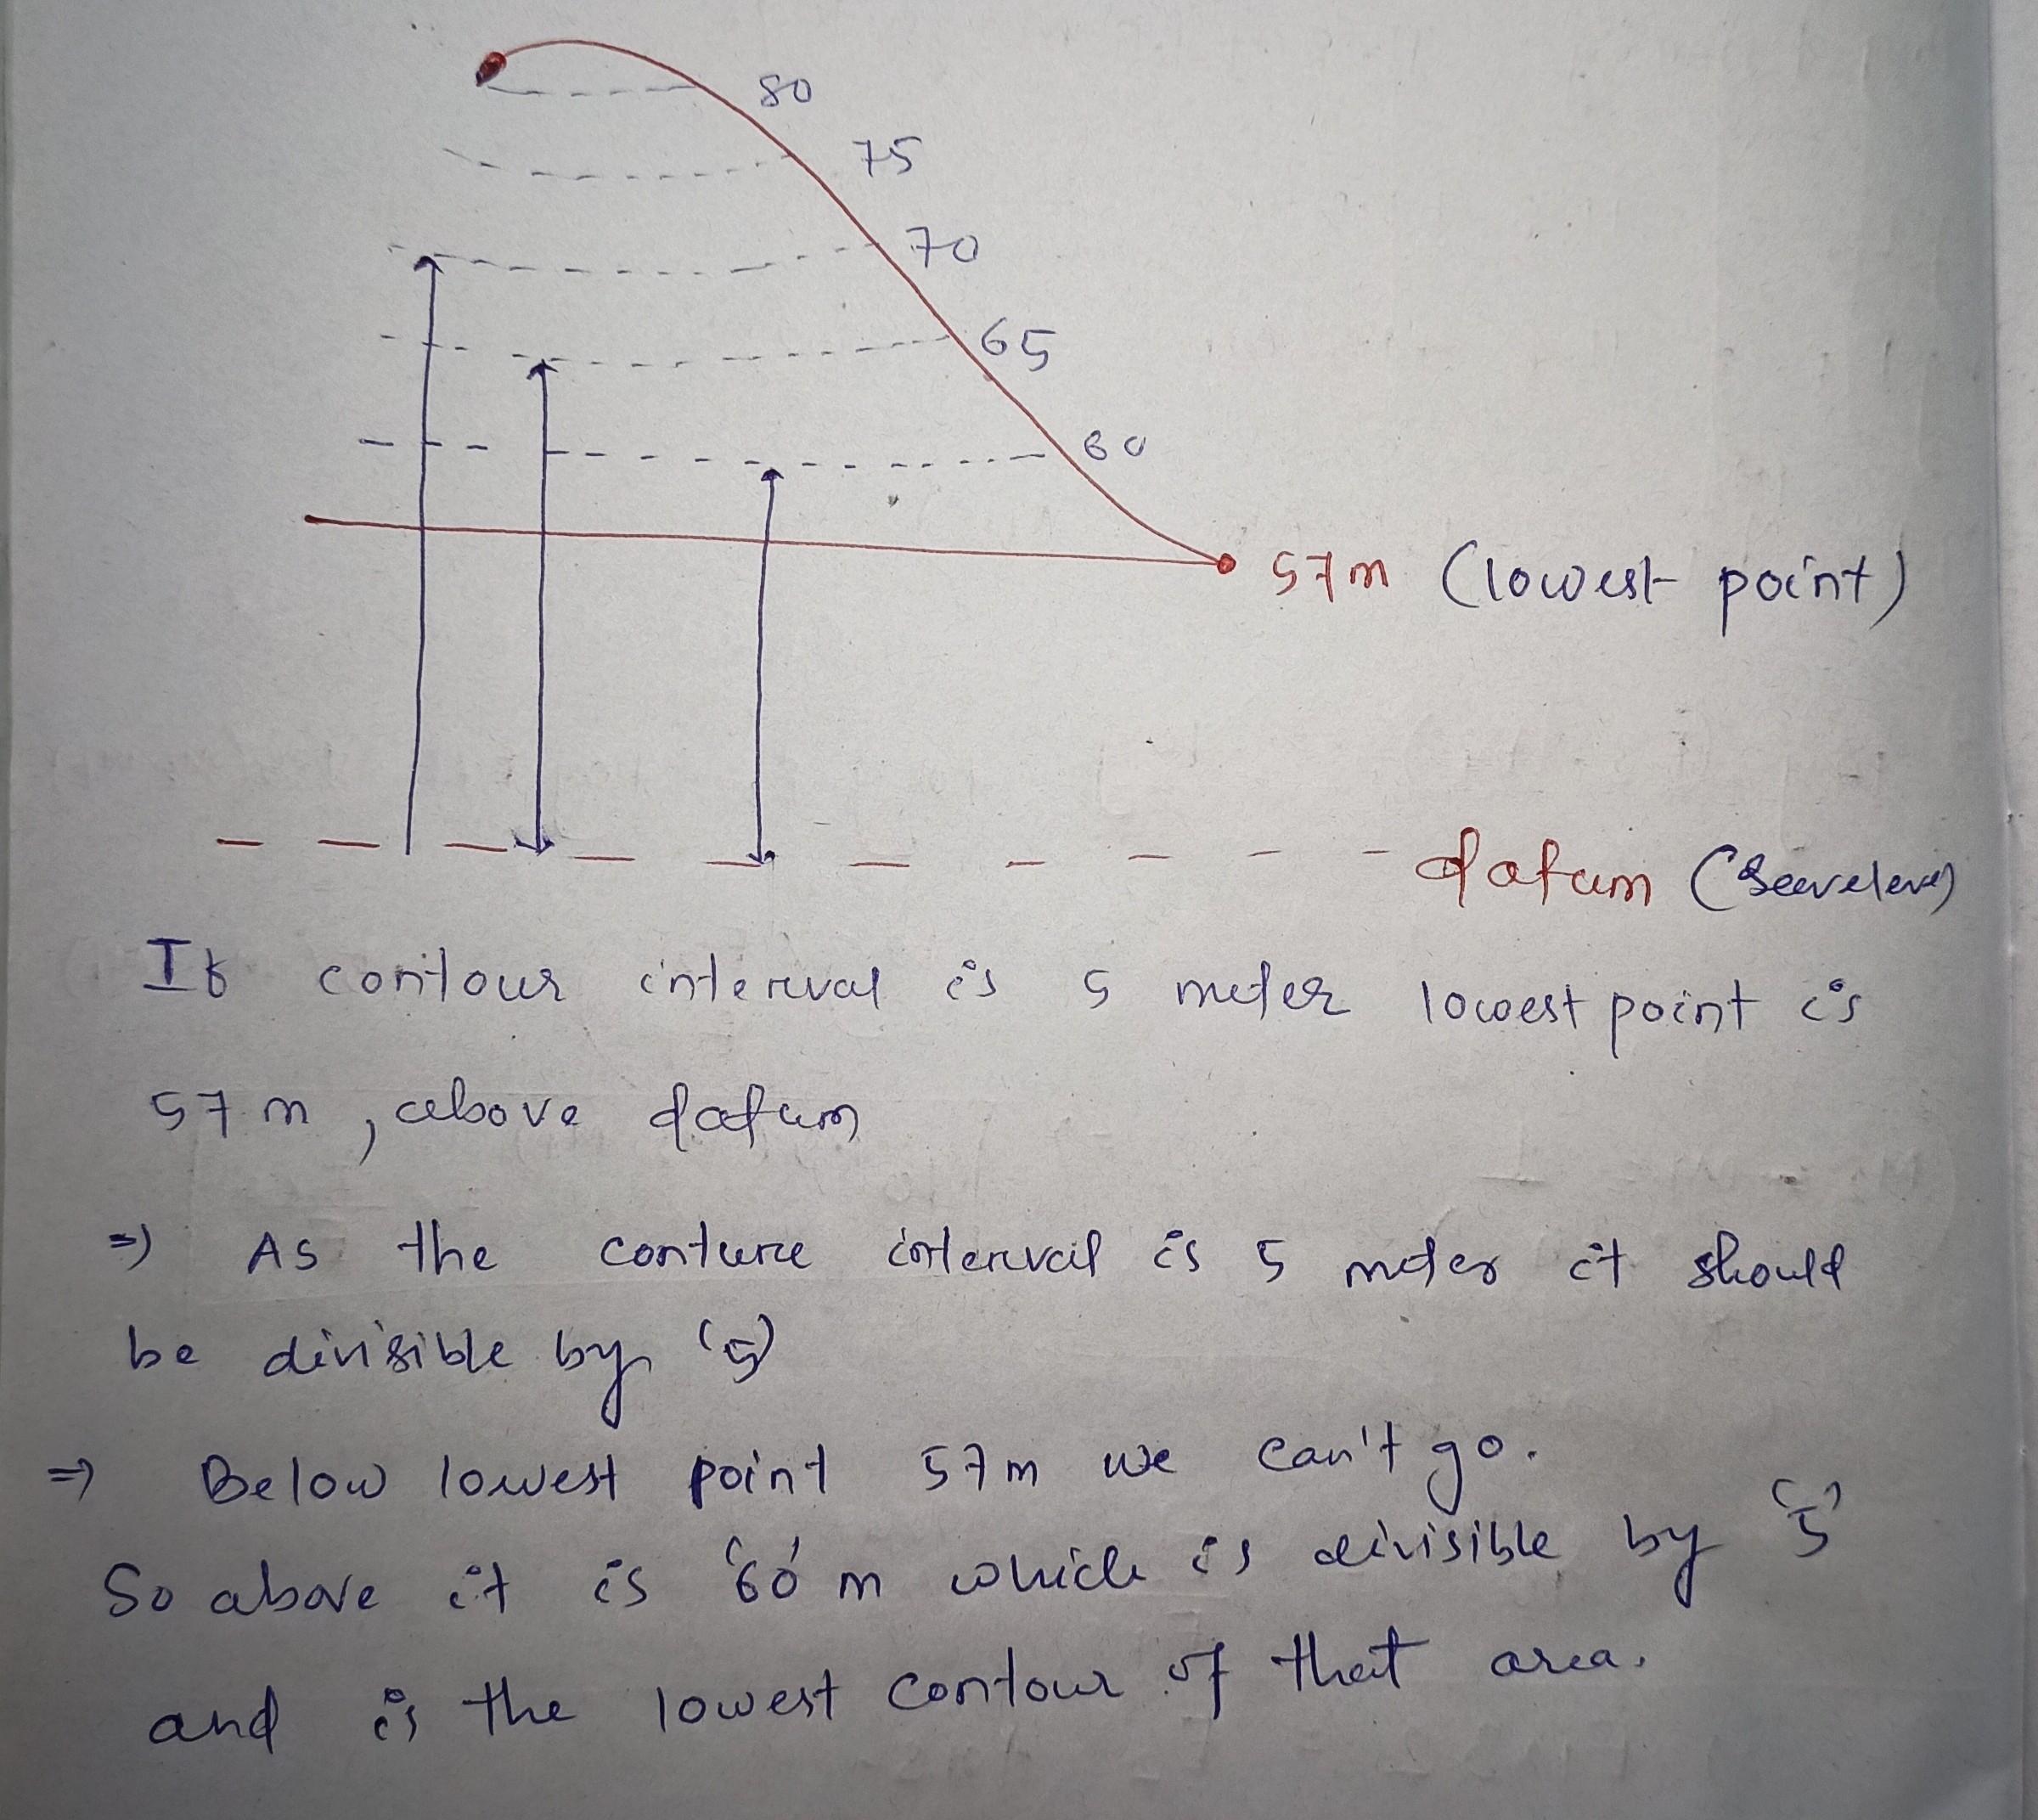 80
75
70
65
60
57m (lowest point)
datum (
If contour interval is 5 meter lowest point is
57 m, above datum
⇒ As the conture interval is 5 meter it should
be divisible by '5'
⇒ Below lowest point 57m we can't go.
So above it is '60' m which is divisible by '5'
and is the lowest contour of that area.